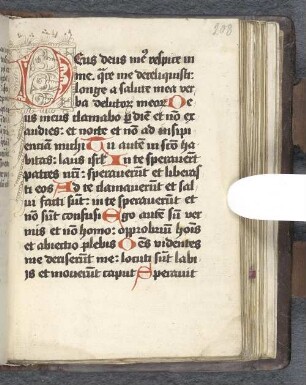 208
Deus deus me9 respice in
me. q̄re me dereliquisti:
longe a salute mea ver
ba delictor meor De
us meus clamabo p diē et nō ex
audies: et nocte et nō ad insipi
entiam michi Tu autē in scō ha
bitas: laus isrl In te speraverūt
patres nr̄i: speraverūt et liberasti
eos Ad te clamaverūt et sal
vi facti sūt: in te speraverūt et
nō sūt confusi Ego autē sū ver
mis et nō homo: opprobriū hoīs
et abiectio plebis Oēs videntes
me deriserūt me: locuti sūt labi
is et moverūt caput Speravit